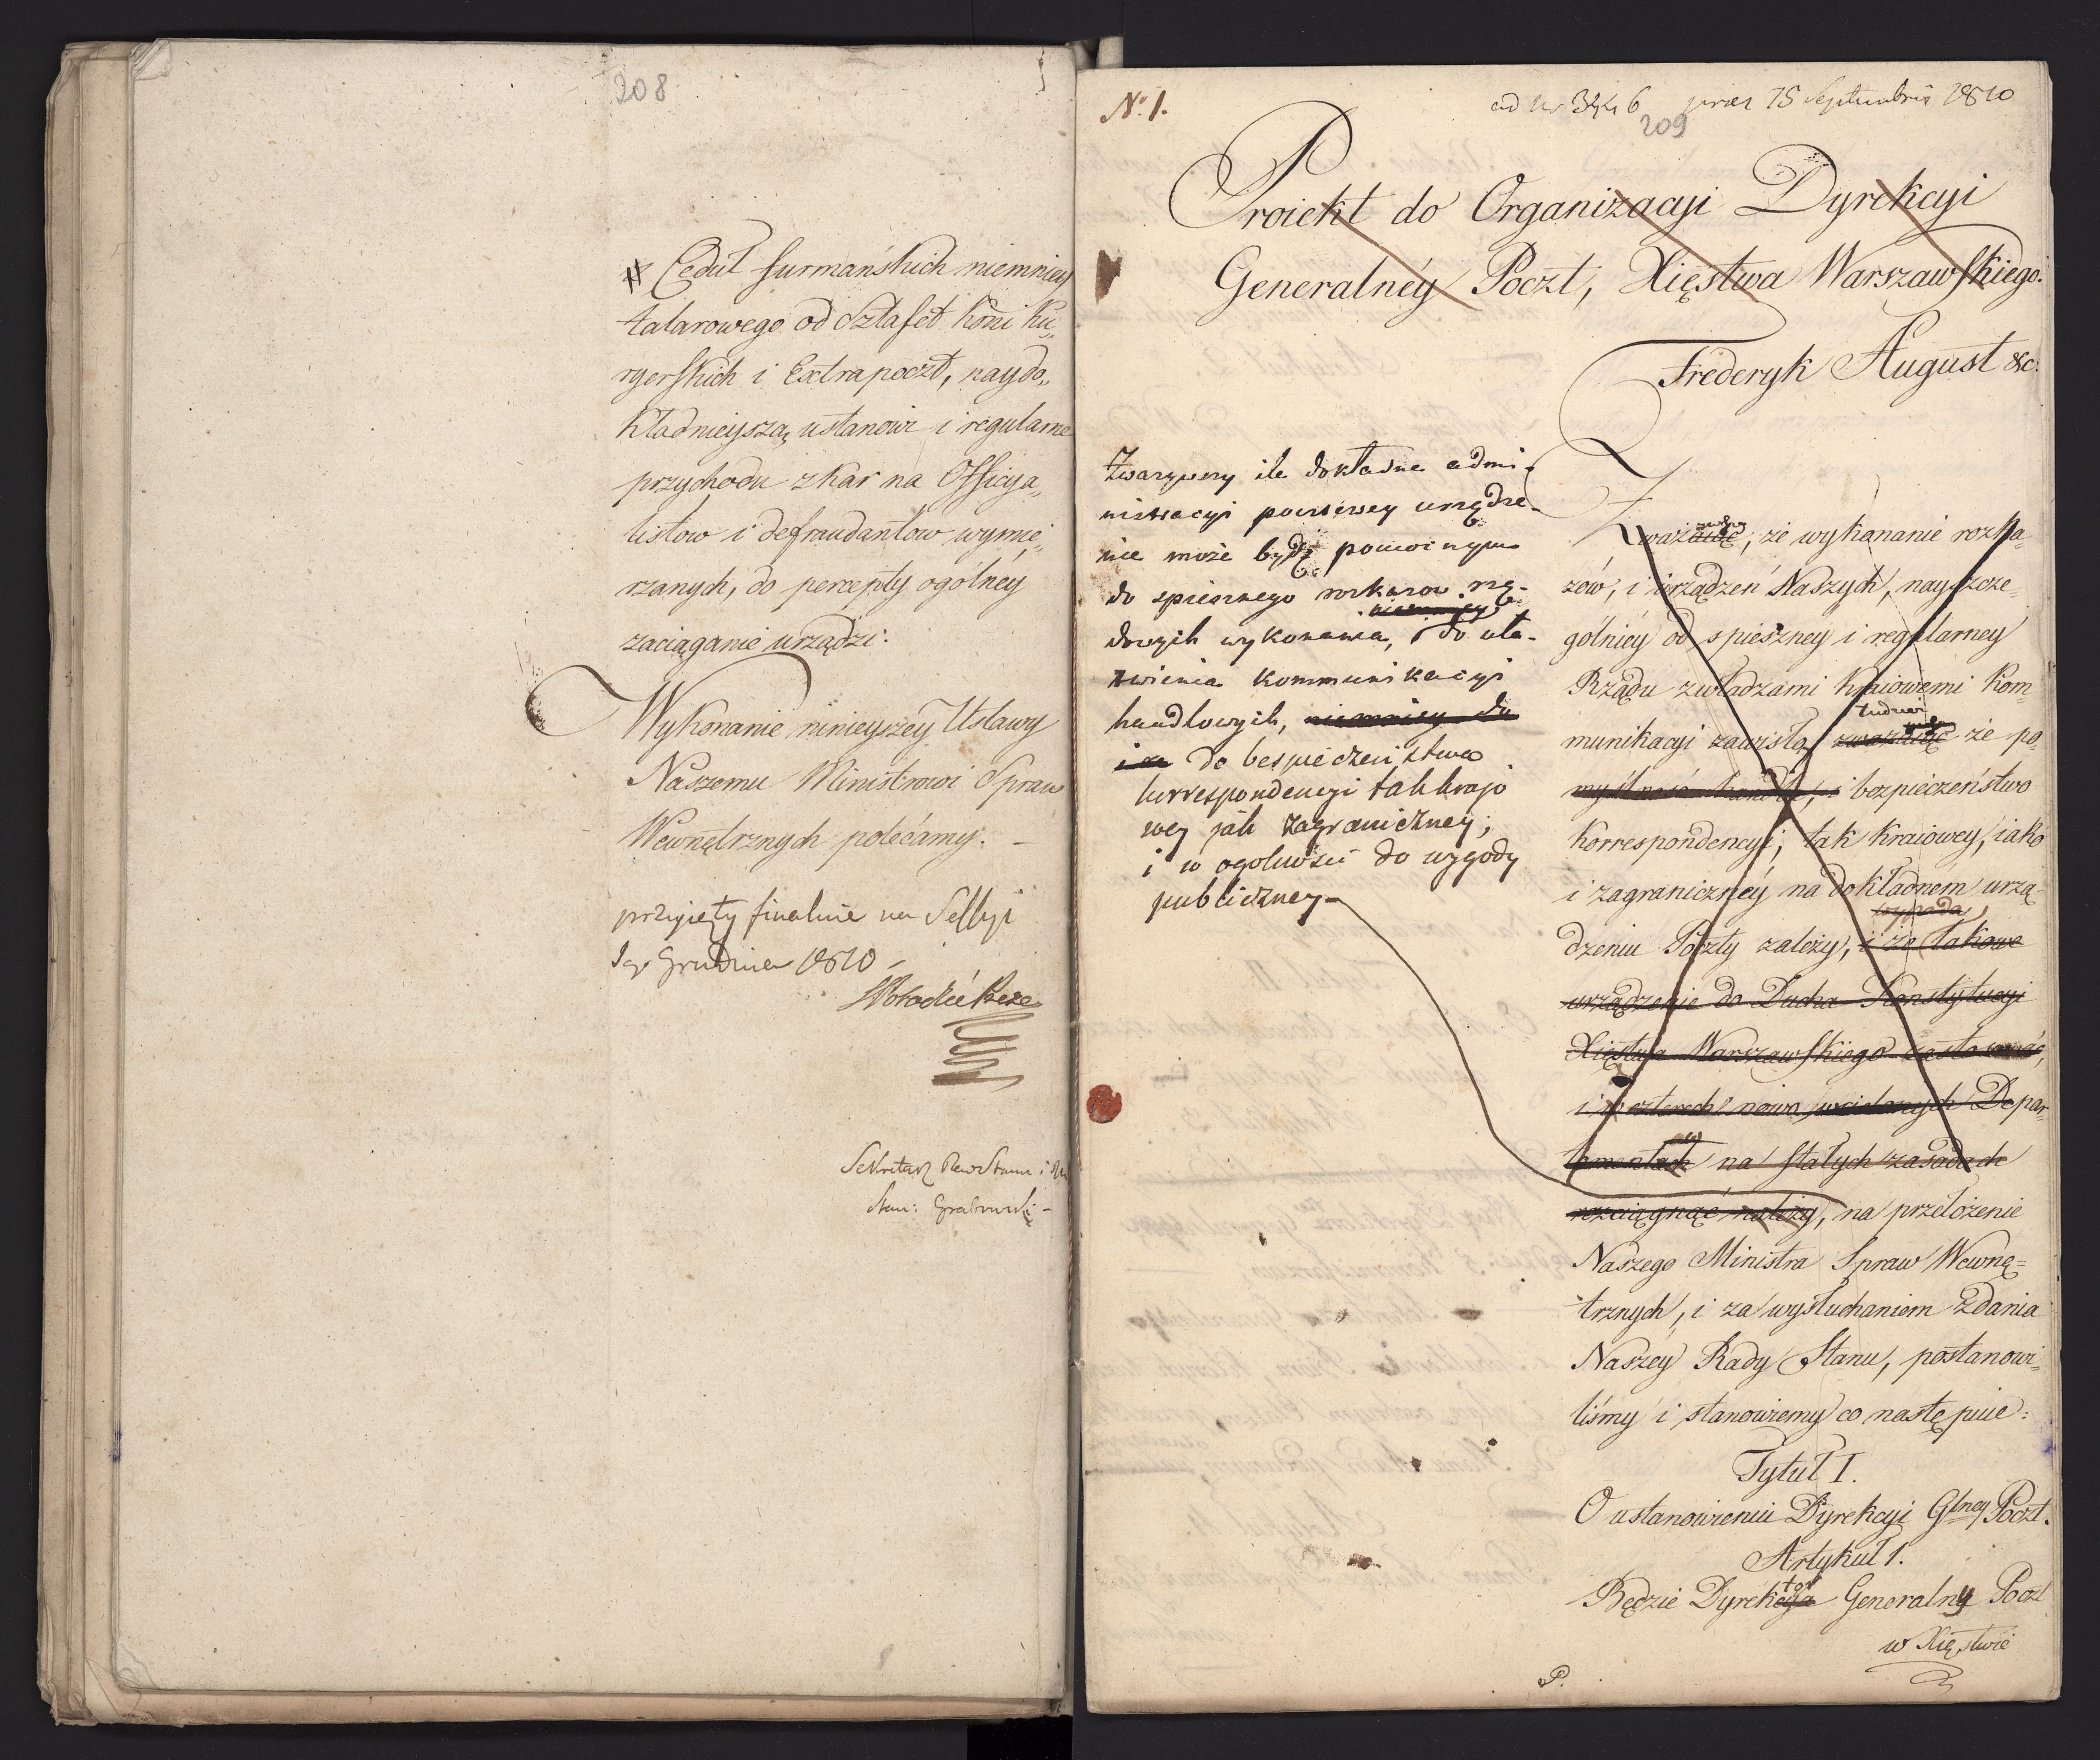 208
# Ceduł furmańskich niemniey
talarowego od Sztafet koni ku„
ryerskich i Extrapoczt, naydo„
kładnieyszą ustanowi i regularne
przychodu z kar na Officya„
listow i defraudantow wymie„
rzanych, do percepty ogólnéy
zaciąganie urządzi:
Wykonanie ninieyszéy Ustawy
Naszemu Ministrowi Spraw
Wewnętrznych polecamy. –
przyięty finalnie na Sessyi
Grudnia 1810 –
Sekretarz Rady Stanu i
Stan: Grabowski –
No 1.
ad Nr 3246 praes 15 Septembris 1810
209
Proiekt do Organizacyi Dyrekcyi
Generalnéy Poczt, Xięstwa Warszawskiego.
Frederyk August &c:
Zważywszy ile dokładne admi-
nistracyi pocztowey urządze-
nie może bydź pomocnym
do spiesznego rozkazow rzą-
niemniey
dowych wykonania, do uła-
twienia kommunikacyi
handlowych, niemniey do
i za do bespieczeństwa
korrespondencyi tak krajo
wey jak zagraniczney;
i w ogolności do wygody
publiczney –
Zważając, że wykonanie rozka„
zów, i urządzeń Naszych, nayszcze„
gólniéy od spieszney i regularney
Rządu z władzami kraiowemi kom„
tudzież
munikacyi zawisło, zważając że po„
myślność handlu, i bezpieczeństwo
korrespondencyi, tak kraiowey, iako
i zagranicznéy na dokładnem urzą„
wypada
dzeniu Poczty zależy, i że takowe
urządzenie do Ducha Konstytucyi
Xięstwa Warszawskiego zastosować,
i w czterech nowo wcielonych Depar„
tamentach na stałych zasadach
rozciągnąć należy, na przełożenie
Naszego Ministra Spraw Wewnę=
trznych, i za wysłuchaniem Zdania
Naszéy Rady Stanu, postanowi„
liśmy i stanowiemy co następuie:
Tytuł I.
O ustanowieniu Dyrekcyi Glney Poczt.
Artykuł 1.
tor
Będzie Dyrekcya Generalny Poczt
w Xięstwie
P.